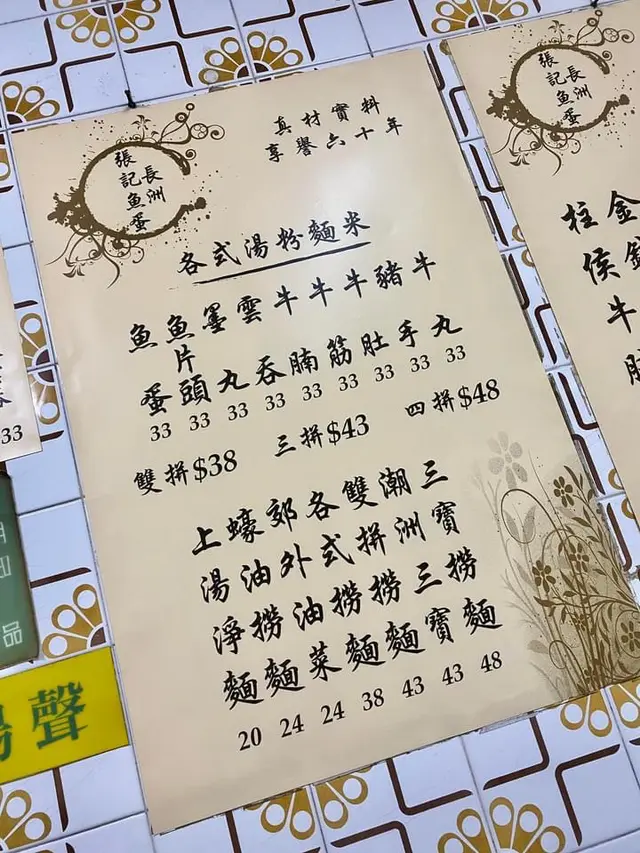 長洲
張記魚蛋
真材實料
享譽六十年
各式湯粉麵米
魚蛋 33
魚片頭 33
墨丸 33
雲吞 33
牛腩 33
牛筋 33
牛肚 33
豬手 33
牛丸 33
雙拼$38
三拼$43
四拼$48
上湯淨麵 20
蠔油撈麵 24
郊外油菜 24
各式撈麵 38
雙拼撈麵 43
潮洲三寶 43
三寶撈麵 48
長洲
張記魚蛋
柱侯牛
金
33
品
聲